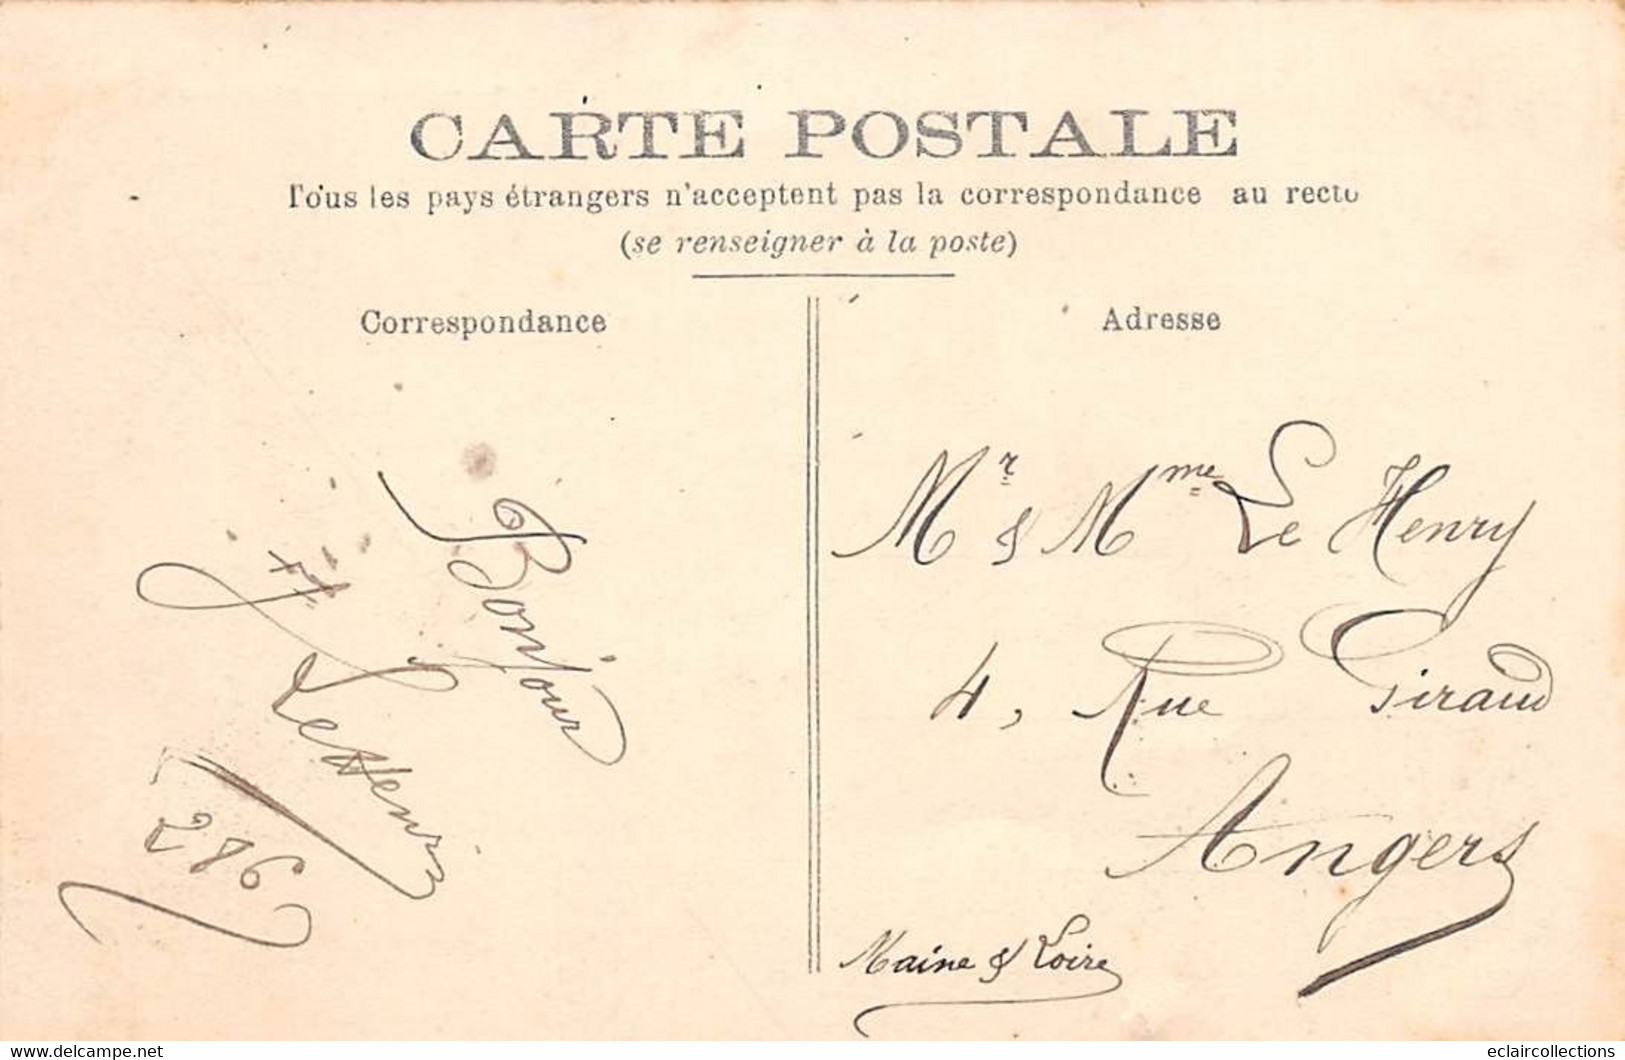 CARTE POSTALE
Tous les pays étrangers n'acceptent pas la correspondance au recto
(se renseigner à la poste)
Correspondance
Bonjour
Le Henry
286
Adresse
Mr & Mme Le Henry
4, Rue Giraud
Angers
Maine & Loire
www.delcampe.net
eclaircollections